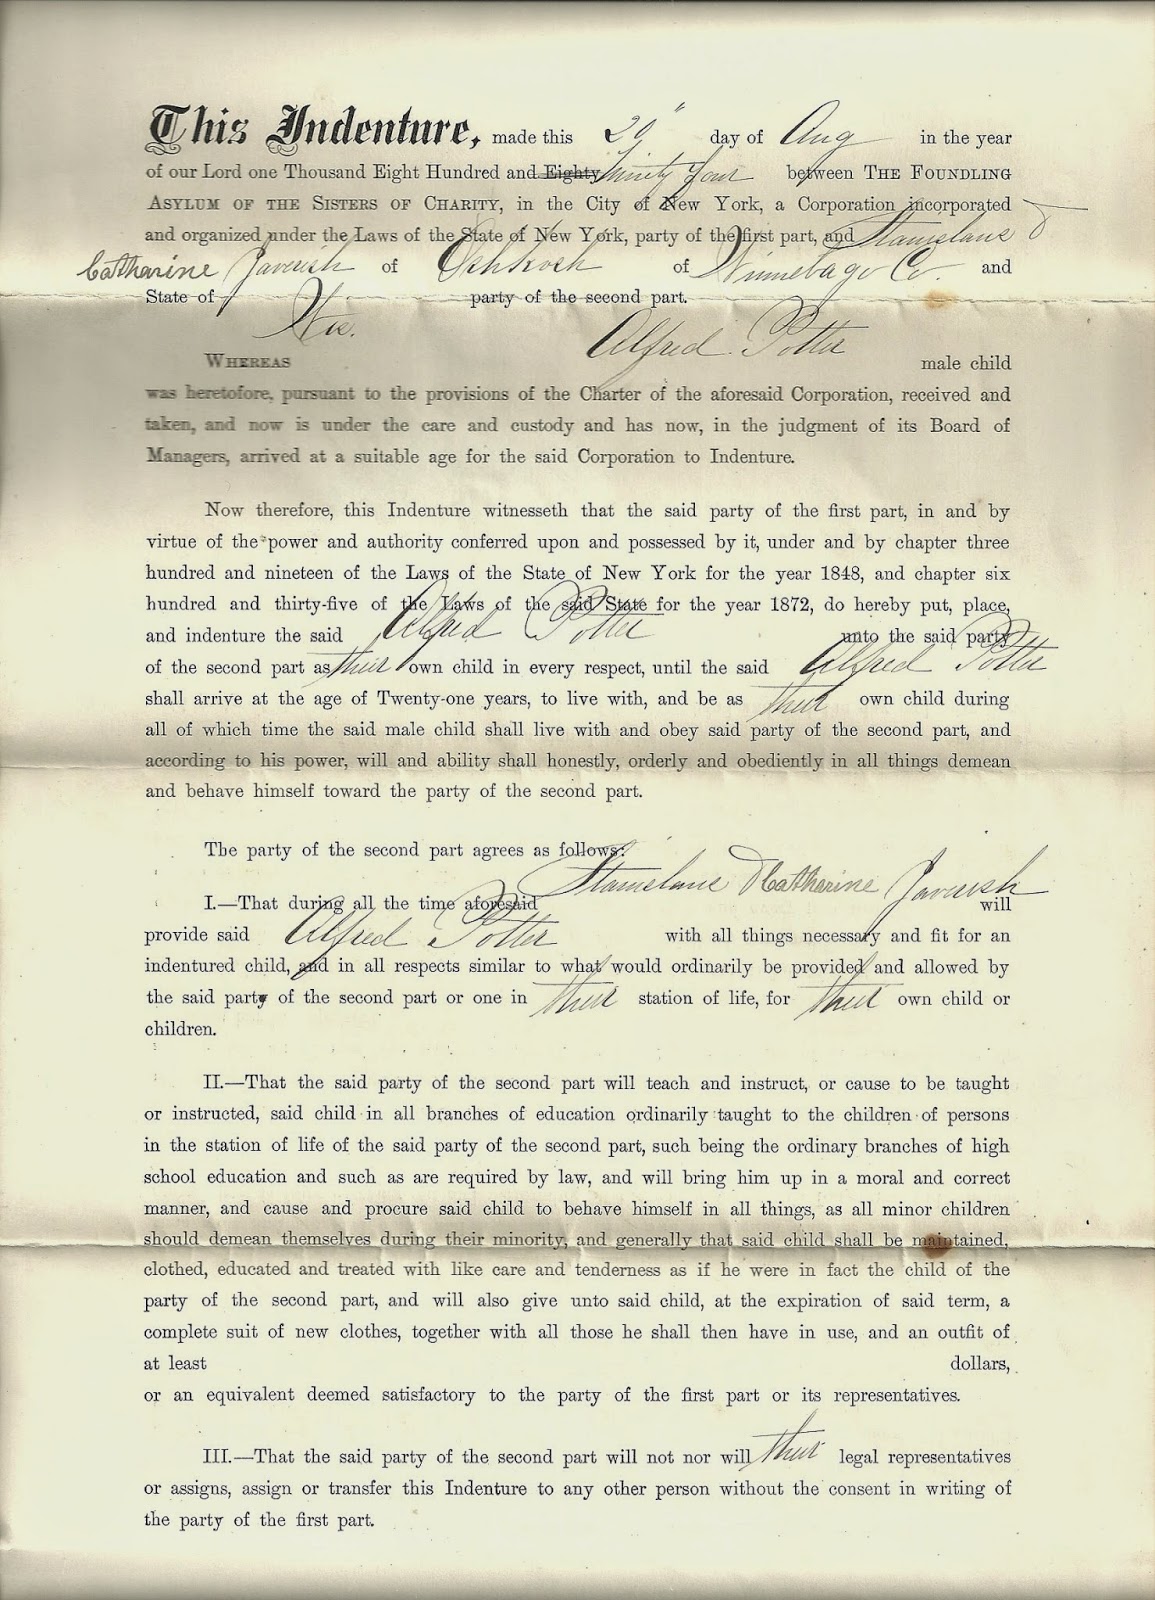 This Indenture, made this 20" day of Aug in the year
of our Lord one Thousand Eight Hundred and Eighty Ninity four between THE FOUNDLING
ASYLUM OF THE SISTERS OF CHARITY, in the City of New York, a Corporation incorporated
and organized under the Laws of the State of New York, party of the first part, and Stanislans &
Catharine Javerish of Oshkosh of Winnebago Co. and
State of Wis. party of the second part.
WHEREAS Alfred Potter male child
was heretofore, pursuant to the provisions of the Charter of the aforesaid Corporation, received and
taken, and now is under the care and custody and has now, in the judgment of its Board of
Managers, arrived at a suitable age for the said Corporation to Indenture.
Now therefore, this Indenture witnesseth that the said party of the first part, in and by
virtue of the power and authority conferred upon and possessed by it, under and by chapter three
hundred and nineteen of the Laws of the State of New York for the year 1848, and chapter six
hundred and thirty-five of the Laws of the said State for the year 1872, do hereby put, place,
and indenture the said Alfred Potter unto the said party
of the second part as their own child in every respect, until the said Alfred Potter
shall arrive at the age of Twenty-one years, to live with, and be as their own child during
all of which time the said male child shall live with and obey said party of the second part, and
according to his power, will and ability shall honestly, orderly and obediently in all things demean
and behave himself toward the party of the second part.
The party of the second part agrees as follows:
I.—That during all the time aforesaid Stanislans & Catharine Javerish will
provide said Alfred Potter with all things necessary and fit for an
indentured child, and in all respects similar to what would ordinarily be provided and allowed by
the said party of the second part or one in their station of life, for their own child or
children.
II.—That the said party of the second part will teach and instruct, or cause to be taught
or instructed, said child in all branches of education ordinarily taught to the children of persons
in the station of life of the said party of the second part, such being the ordinary branches of high
school education and such as are required by law, and will bring him up in a moral and correct
manner, and cause and procure said child to behave himself in all things, as all minor children
should demean themselves during their minority, and generally that said child shall be maintained,
clothed, educated and treated with like care and tenderness as if he were in fact the child of the
party of the second part, and will also give unto said child, at the expiration of said term, a
complete suit of new clothes, together with all those he shall then have in use, and an outfit of
at least dollars,
or an equivalent deemed satisfactory to the party of the first part or its representatives.
III.—That the said party of the second part will not nor will their legal representatives
or assigns, assign or transfer this Indenture to any other person without the consent in writing of
the party of the first part.